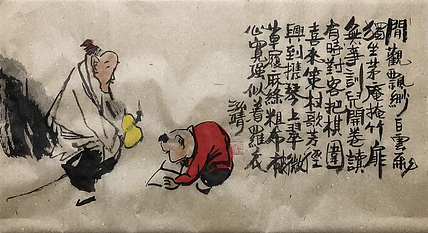 閒觀飄緲白雲飛
獨坐茅庵掩竹扉
無事訓兒開卷讀
有時對客把棋圍
喜來策杖歌芳徑
興到攜琴上翠微
草履麻絲粗布被
心寬強似着羅衣